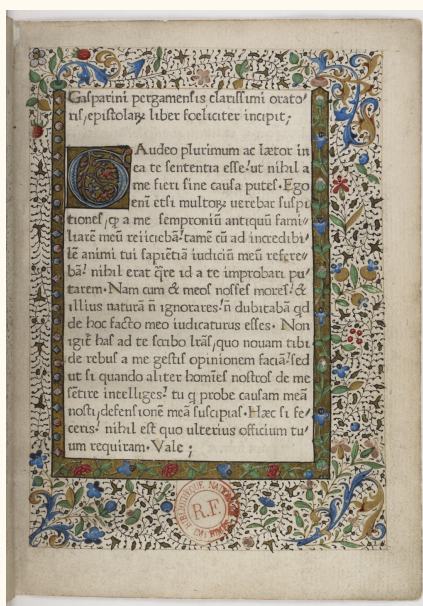 Gasparini pergamensis clarissimi orato⸗
ris, epistolaꝝ liber foeliciter incipit;
GAudeo plurimum ac lætor in
ea te sententia esse! ut nihil a
me fieri sine causa putes. Ego
eni etsi multoꝝ uerebar suspi
tiones, ꝙ a me semproniũ antiquũ fami⸗
liarẽ meũ reiiciebã! tamẽ cũ ad incredibi⸗
lẽ animi tui sapiẽtiã iudiciũ meũ refere⸗
bã! nihil erat q̃re id a te improbari pu⸗
tarem. Nam cum & meos nosses mores! &
illius naturã nõ ignorares! ñ dubitabã qd
de hoc facto meo iudicaturus esses. Non
igit̃ has ad te scribo lr̃as, quo nouam tibi
de rebus a me gestis opinionem faciã! sed
ut si quando aliter homĩes nostros de me
sẽtire intelliges! tu q probe causam meam
nosti, defensionẽ meã suscipias. Hæc si fe⸗
ceris! nihil est quo ulterius officium tu⸗
um requiram. Vale;
BIBLIOTHEQUE NATIONALE
R.F.